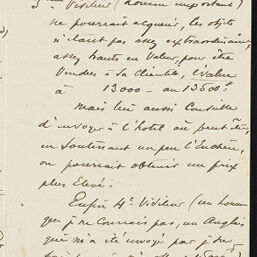 3e Visiteur (homme important)
ne pourrait acquérir, les objets
n'étant pas assez extraordinaires,
assez hauts en Valeur, pour être
Vendus à sa clientèle, évalue
à 13000 - au 13500 f
mais lui aussi Conseille
d'envoyer à l'hotel où peut être,
en Soutenant un peu l'Enchère,
on pourrait obtenir un prix
plus Elevé.
Enfin 4e Visiteur (un homme
que je ne Connais pas, un Anglais
que m'a été envoyé par